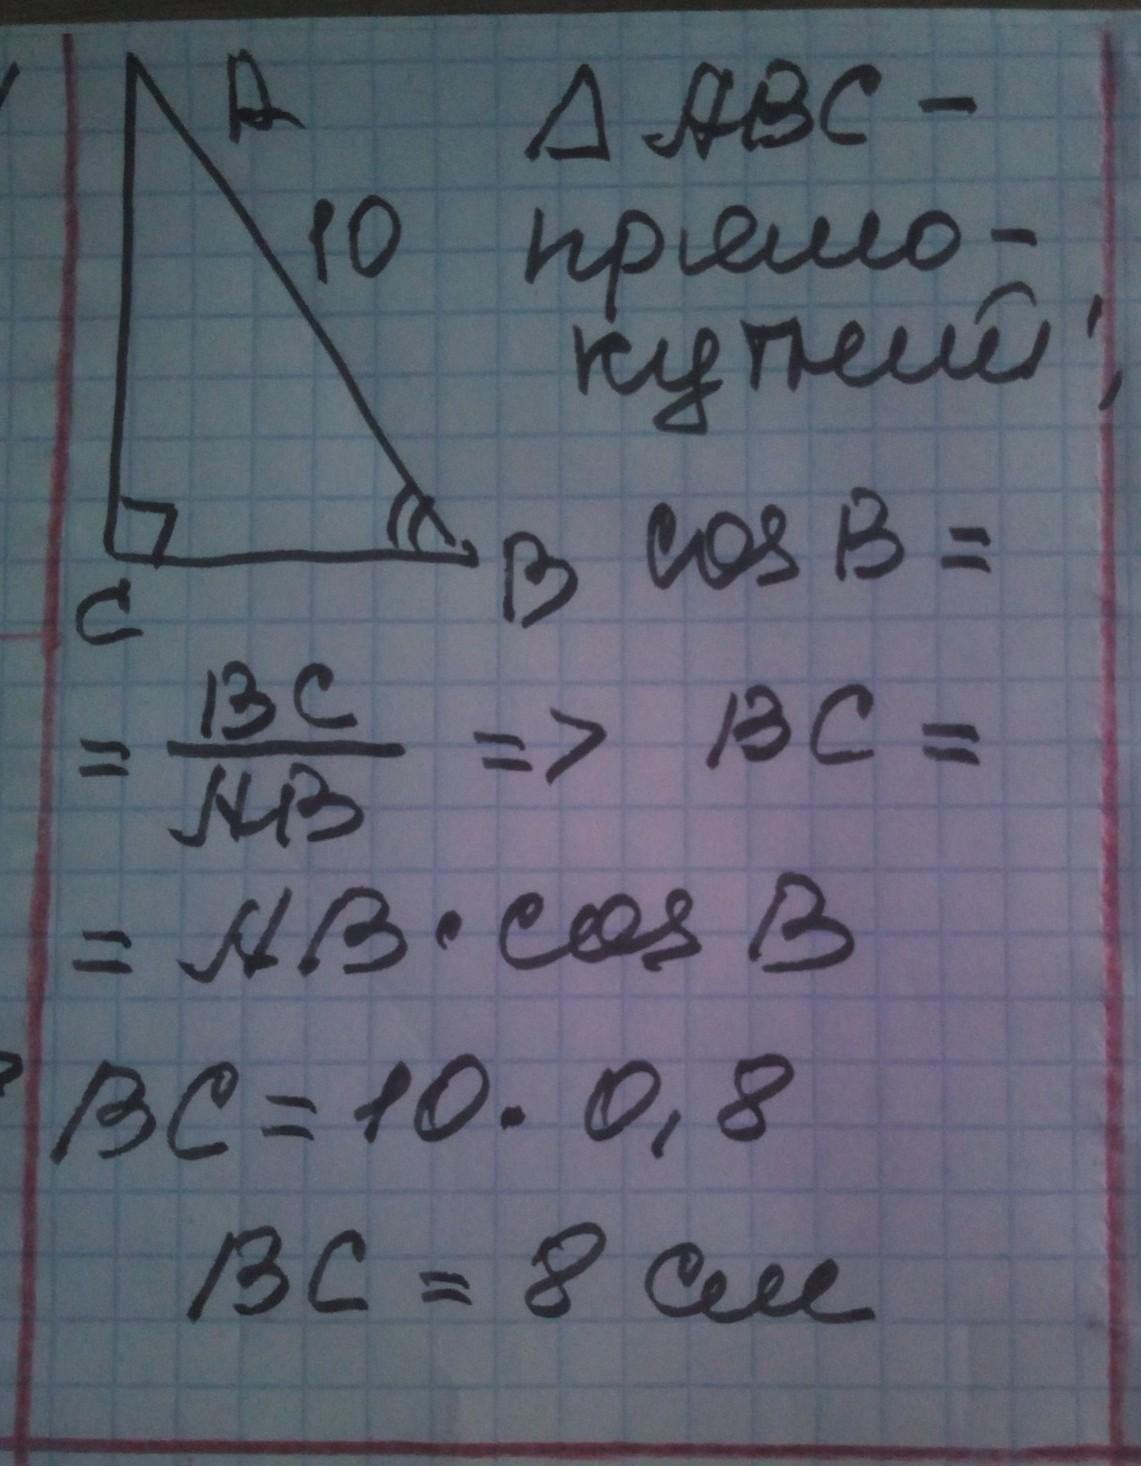 A
10
C
B
Δ ABC -
прямо-
кутний;
cos B =
= BC/AB => BC =
= AB · cos B
BC = 10 · 0,8
BC = 8 см